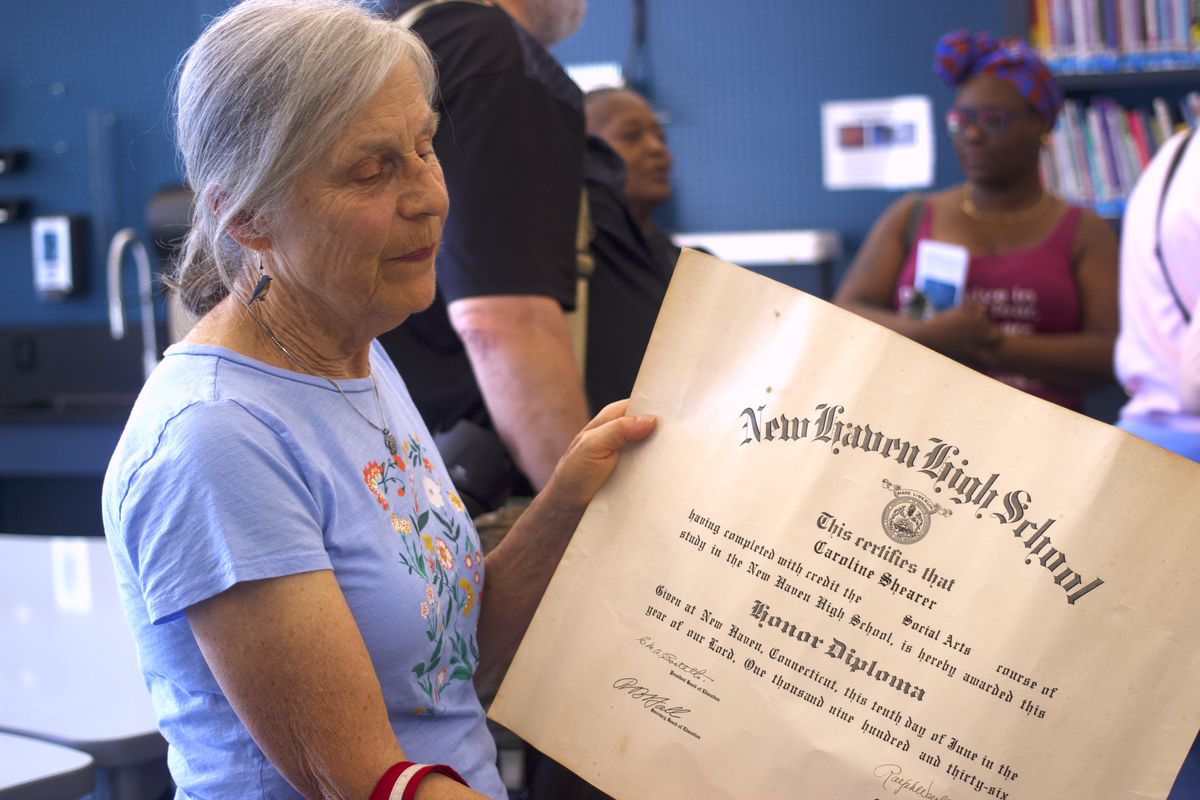 New Haven High School
MARE LIBERUM
This certifies that
Caroline Shearer
having completed with credit the Social Arts course of
study in the New Haven High School, is hereby awarded this
Honor Diploma
Given at New Haven, Connecticut, this tenth day of June in the
year of our Lord, One thousand nine hundred and thirty-six
President Board of Education
Secretary Board of Education